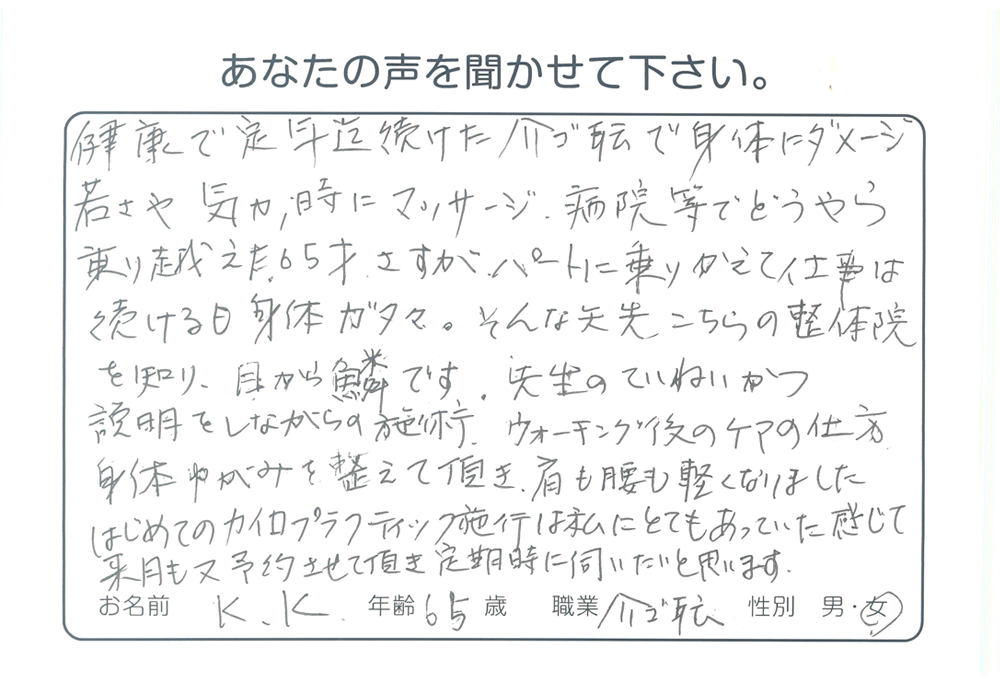 あなたの声を聞かせて下さい。
健康で定年迄続けた介ゴ転で身体にダメージ
若さや気力、時にマッサージ、病院等でどうやら
乗り越えた65才。さすが、パートに乗りかえて仕事は
続ける日身体ガタ々。そんな矢先こちらの整体院
を知り、目から鱗です。先生のていねいかつ
説明をしながらの施術、ウォーキング後のケアの仕方
身体ゆがみを整えて頂き、肩も腰も軽くなりました
はじめてのカイロプラフティック施行は私にとてもあっていた感じて
来月も又予約させて頂き定期時に伺いたいと思います。
お名前 K.K. 年齢 65 歳 職業 介ゴ転 性別 男・女